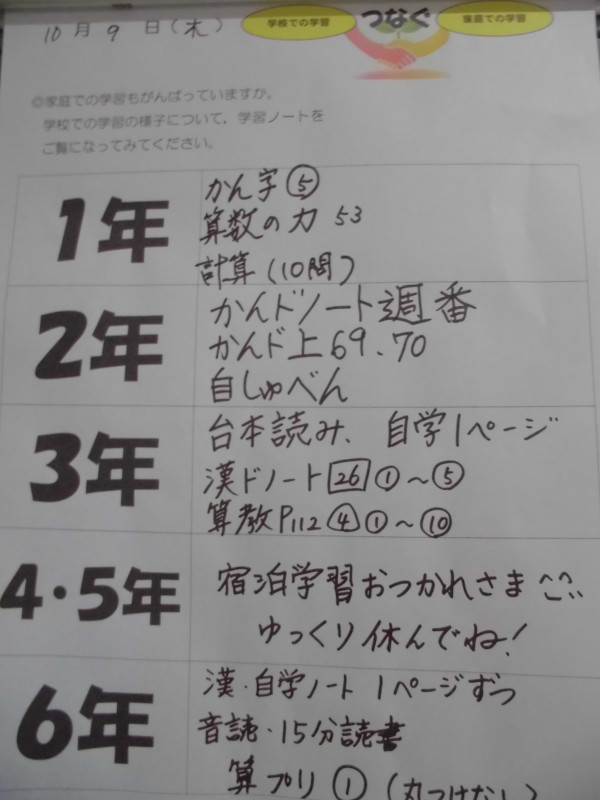 10月9日(木)
学校での学習 つなぐ 家庭での学習
◎家庭での学習もがんばっていますか。
学校での学習の様子について、学習ノートを
ご覧になってみてください。
1年
かん字⑤
算数の力 53
計算(10問)
2年
かんドノート週番
かんド上69.70
自しゅべん
3年
台本読み、自学1ページ
漢ドノート26①～⑤
算教P112④①～⑩
4・5年
宿泊学習おつかれさま^^
ゆっくり休んでね!
6年
漢・自学ノート 1ページずつ
音読・15分読書
算プリ①(丸つけなし)